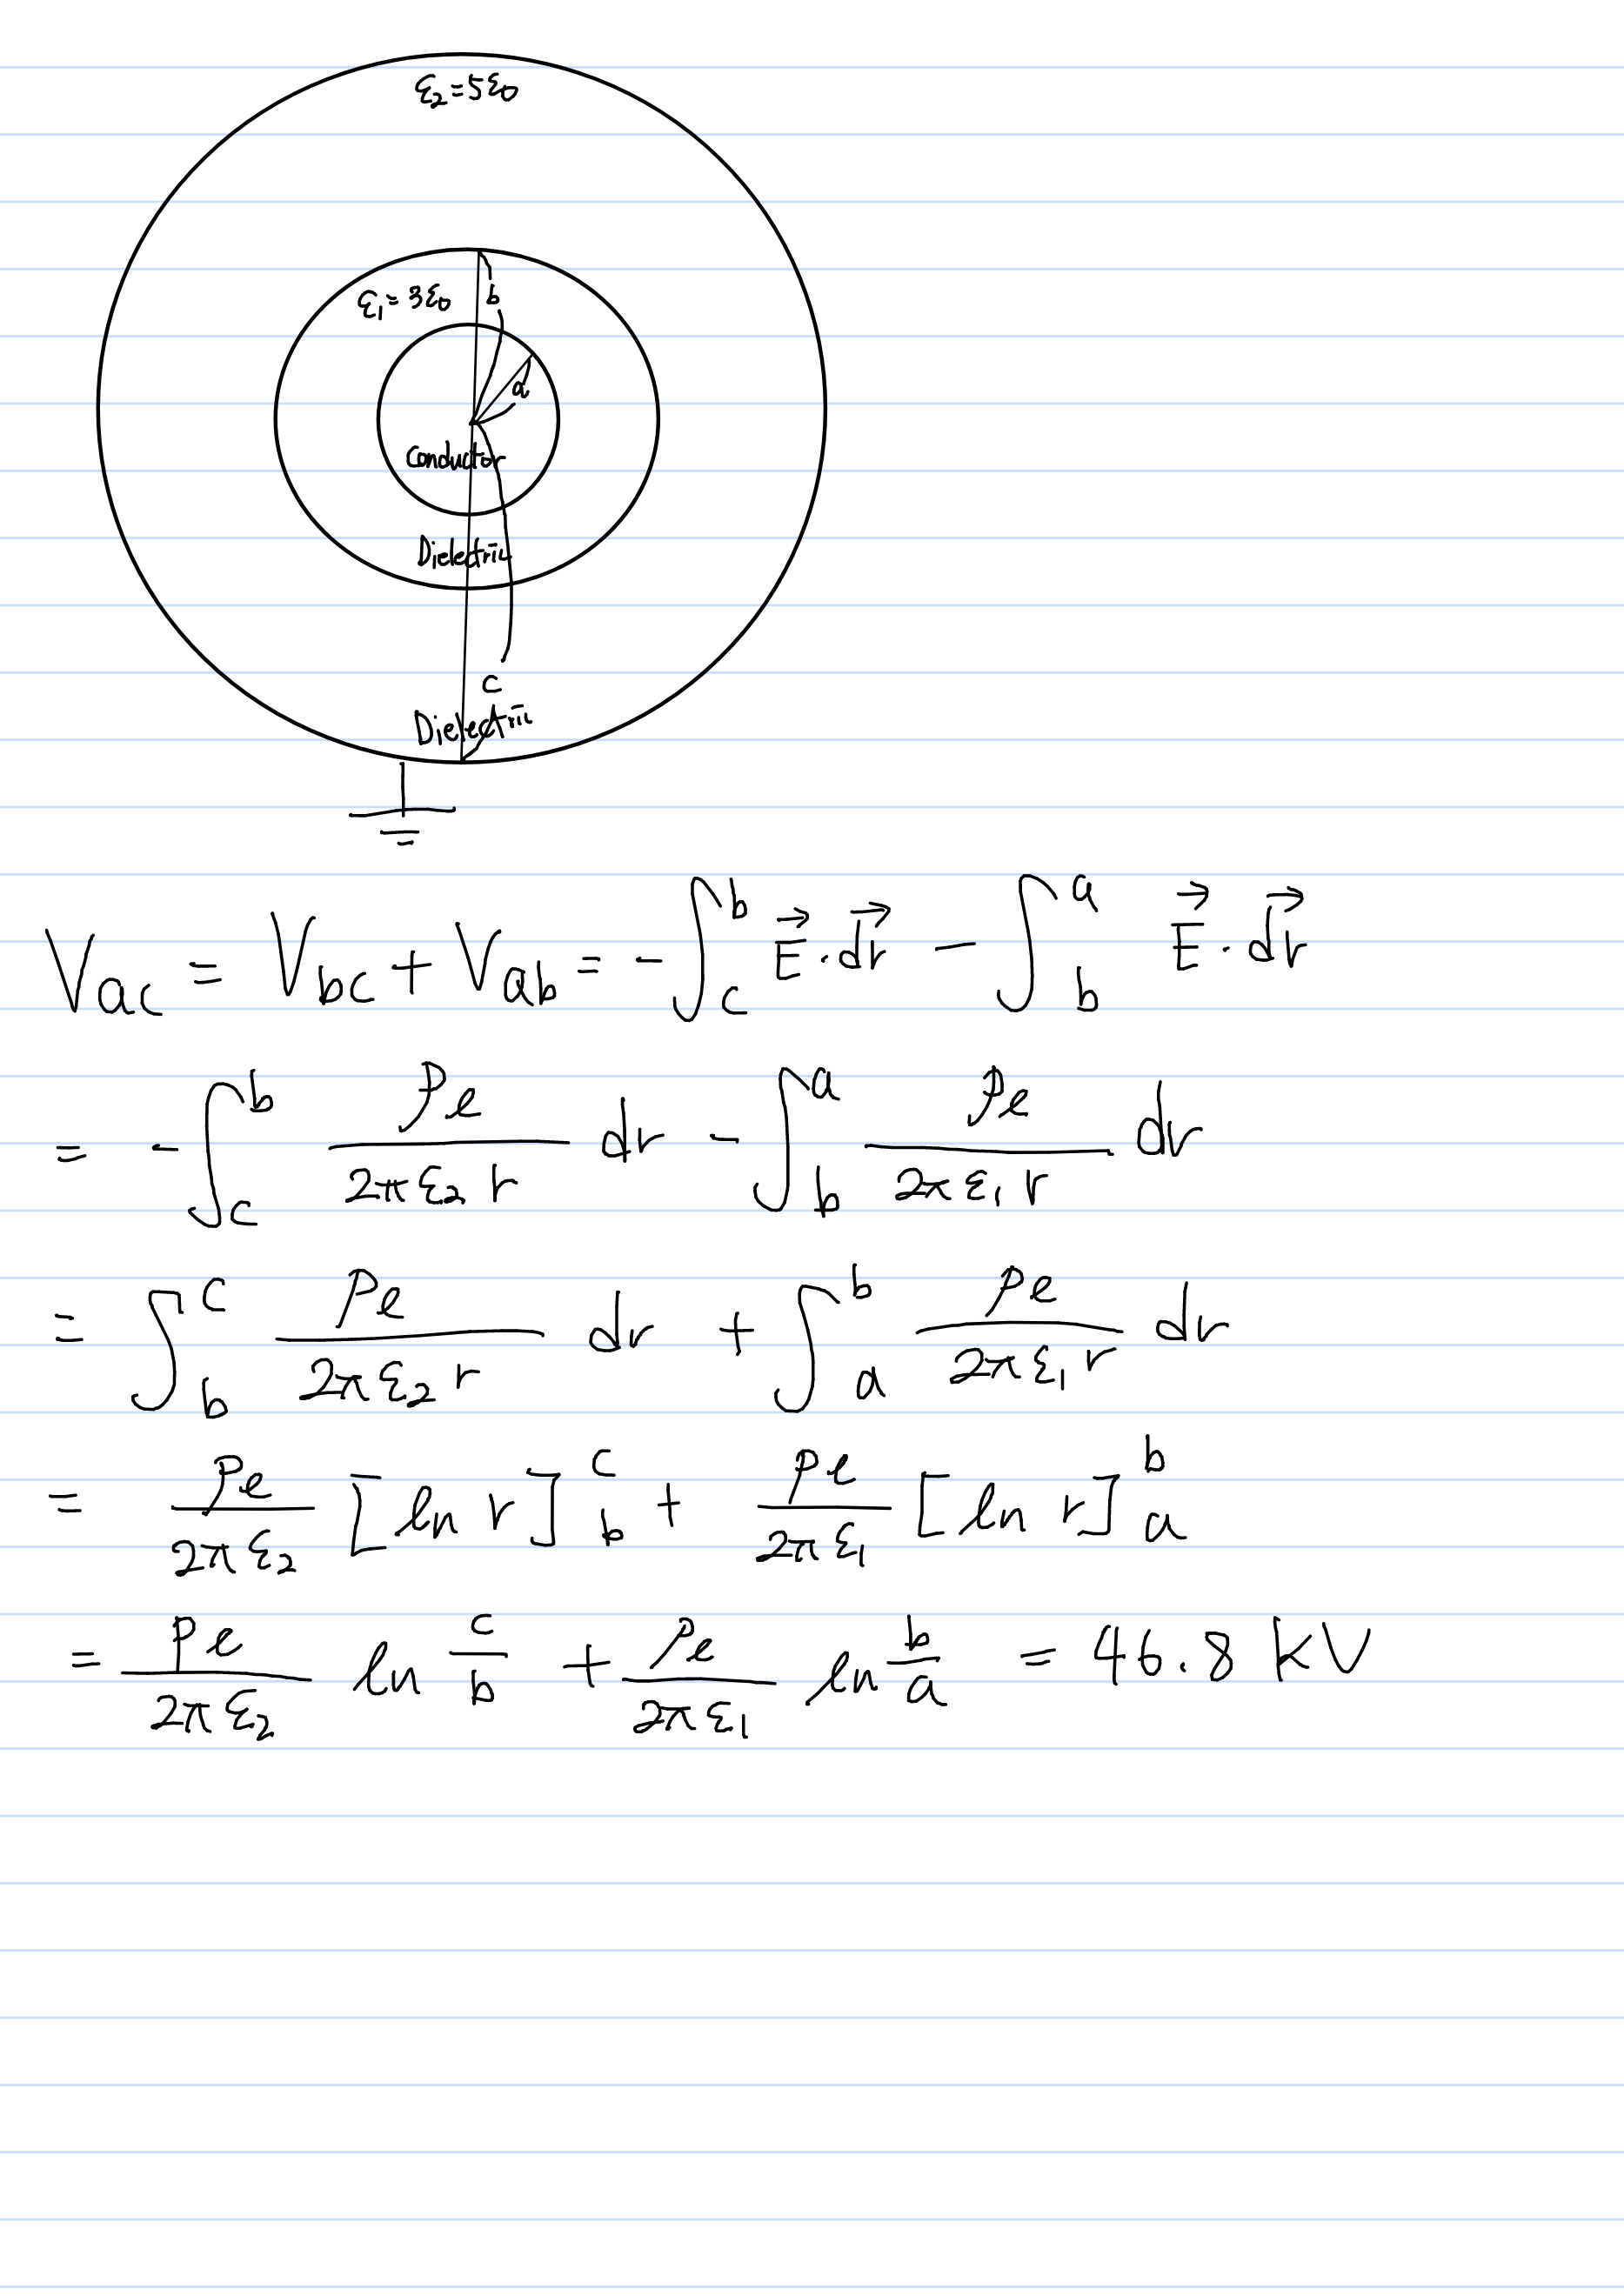 ε₂=5ε₀
ε₁=3ε₀
b
a
Conductor
Dielectric
c
Dielectric
V_ac = V_bc + V_ab = -∫_c^b E⃗·d⃗r - ∫_b^a E⃗·d⃗r
= -∫_c^b ρ_ℓ/(2πε₂r) dr - ∫_b^a ρ_ℓ/(2πε₁r) dr
= ∫_b^c ρ_ℓ/(2πε₂r) dr + ∫_a^b ρ_ℓ/(2πε₁r) dr
= ρ_ℓ/(2πε₂) [ln r]_b^c + ρ_ℓ/(2πε₁) [ln r]_a^b
= ρ_ℓ/(2πε₂) ln c/b + ρ_ℓ/(2πε₁) ln b/a = 46.8 kV